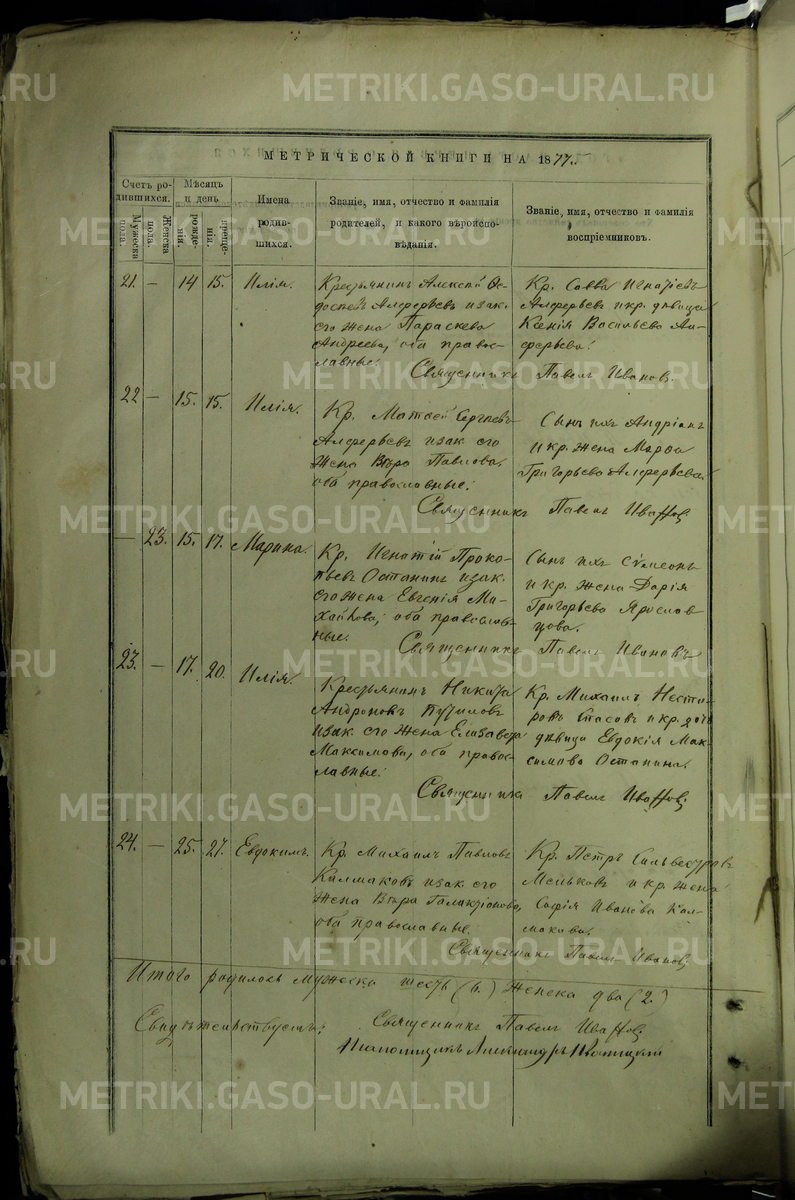 МЕТРИЧЕСКОЙ КНИГИ НА 1877.
Счетъ ро-
дившихся.
Мужеска пола.
Женска пола.
Мѣсяцъ и день
рожде-
нія.
креще-
нія.
Имена
родив-
шихся.
Званіе, имя, отчество и фамилія
родителей, и какого вѣроиспо-
вѣданія.
Званіе, имя, отчество и фамилія
воспріемниковъ.
21. — 14 15. Илія.
Крестьянинъ Алексѣй Ѳе-
Алферьевъ и зак.
его жена Параскева
Андреева, оба право-
славные.
Кр. Савва Игнатіевъ
Алферьевъ и кр. дѣвица
Ксенія Васильева Ал-
ферьева.
Священникъ Павелъ Ивановъ.
22 — 15. 15. Илія.
Кр. Матвей Сергѣевъ
Алферьевъ и зак. его
жена Вѣра Павлова,
оба православные.
Сынъ ихъ Андріанъ
и кр. жена Марѳа
Григорьева Алферьева.
Священникъ Павелъ Ивановъ
— 23. 15. 17. Марина.
Кр. Игнатій Проко-
пьевъ Останинъ и зак.
его жена Евгенія Ми-
хайлова, оба православ-
ные.
Сынъ ихъ Сѵмеонъ
и кр. жена Дарія
Григорьева Ярослав
цова.
Священникъ Павелъ Ивановъ
23. — 17. 20. Илія.
Крестьянинъ Никита
Андроновъ
и зак. его жена Елизавета
Максимова, оба право-
славные.
Кр. Михаилъ Несте-
ровъ и кр. дочь
дѣвица Евдокія Мак-
симова Останина.
Священникъ Павелъ Ивановъ.
24. — 25. 27. Евдокимъ.
Кр. Михаилъ Павловъ
Калмаковъ и зак. его
жена Вѣра Галактіонова,
оба православные.
Кр. Петръ Сильвестровъ
Меньковъ и кр. жена
Софія Иванова Кал-
макова.
Священникъ Павелъ Ивановъ
Итого родилось мужеска шесть (6.) женска два (2.)
Свидѣтельствуетъ:
Священникъ Павелъ Ивановъ
Псаломщикъ Александръ
METRIKI.GASO-URAL.RU